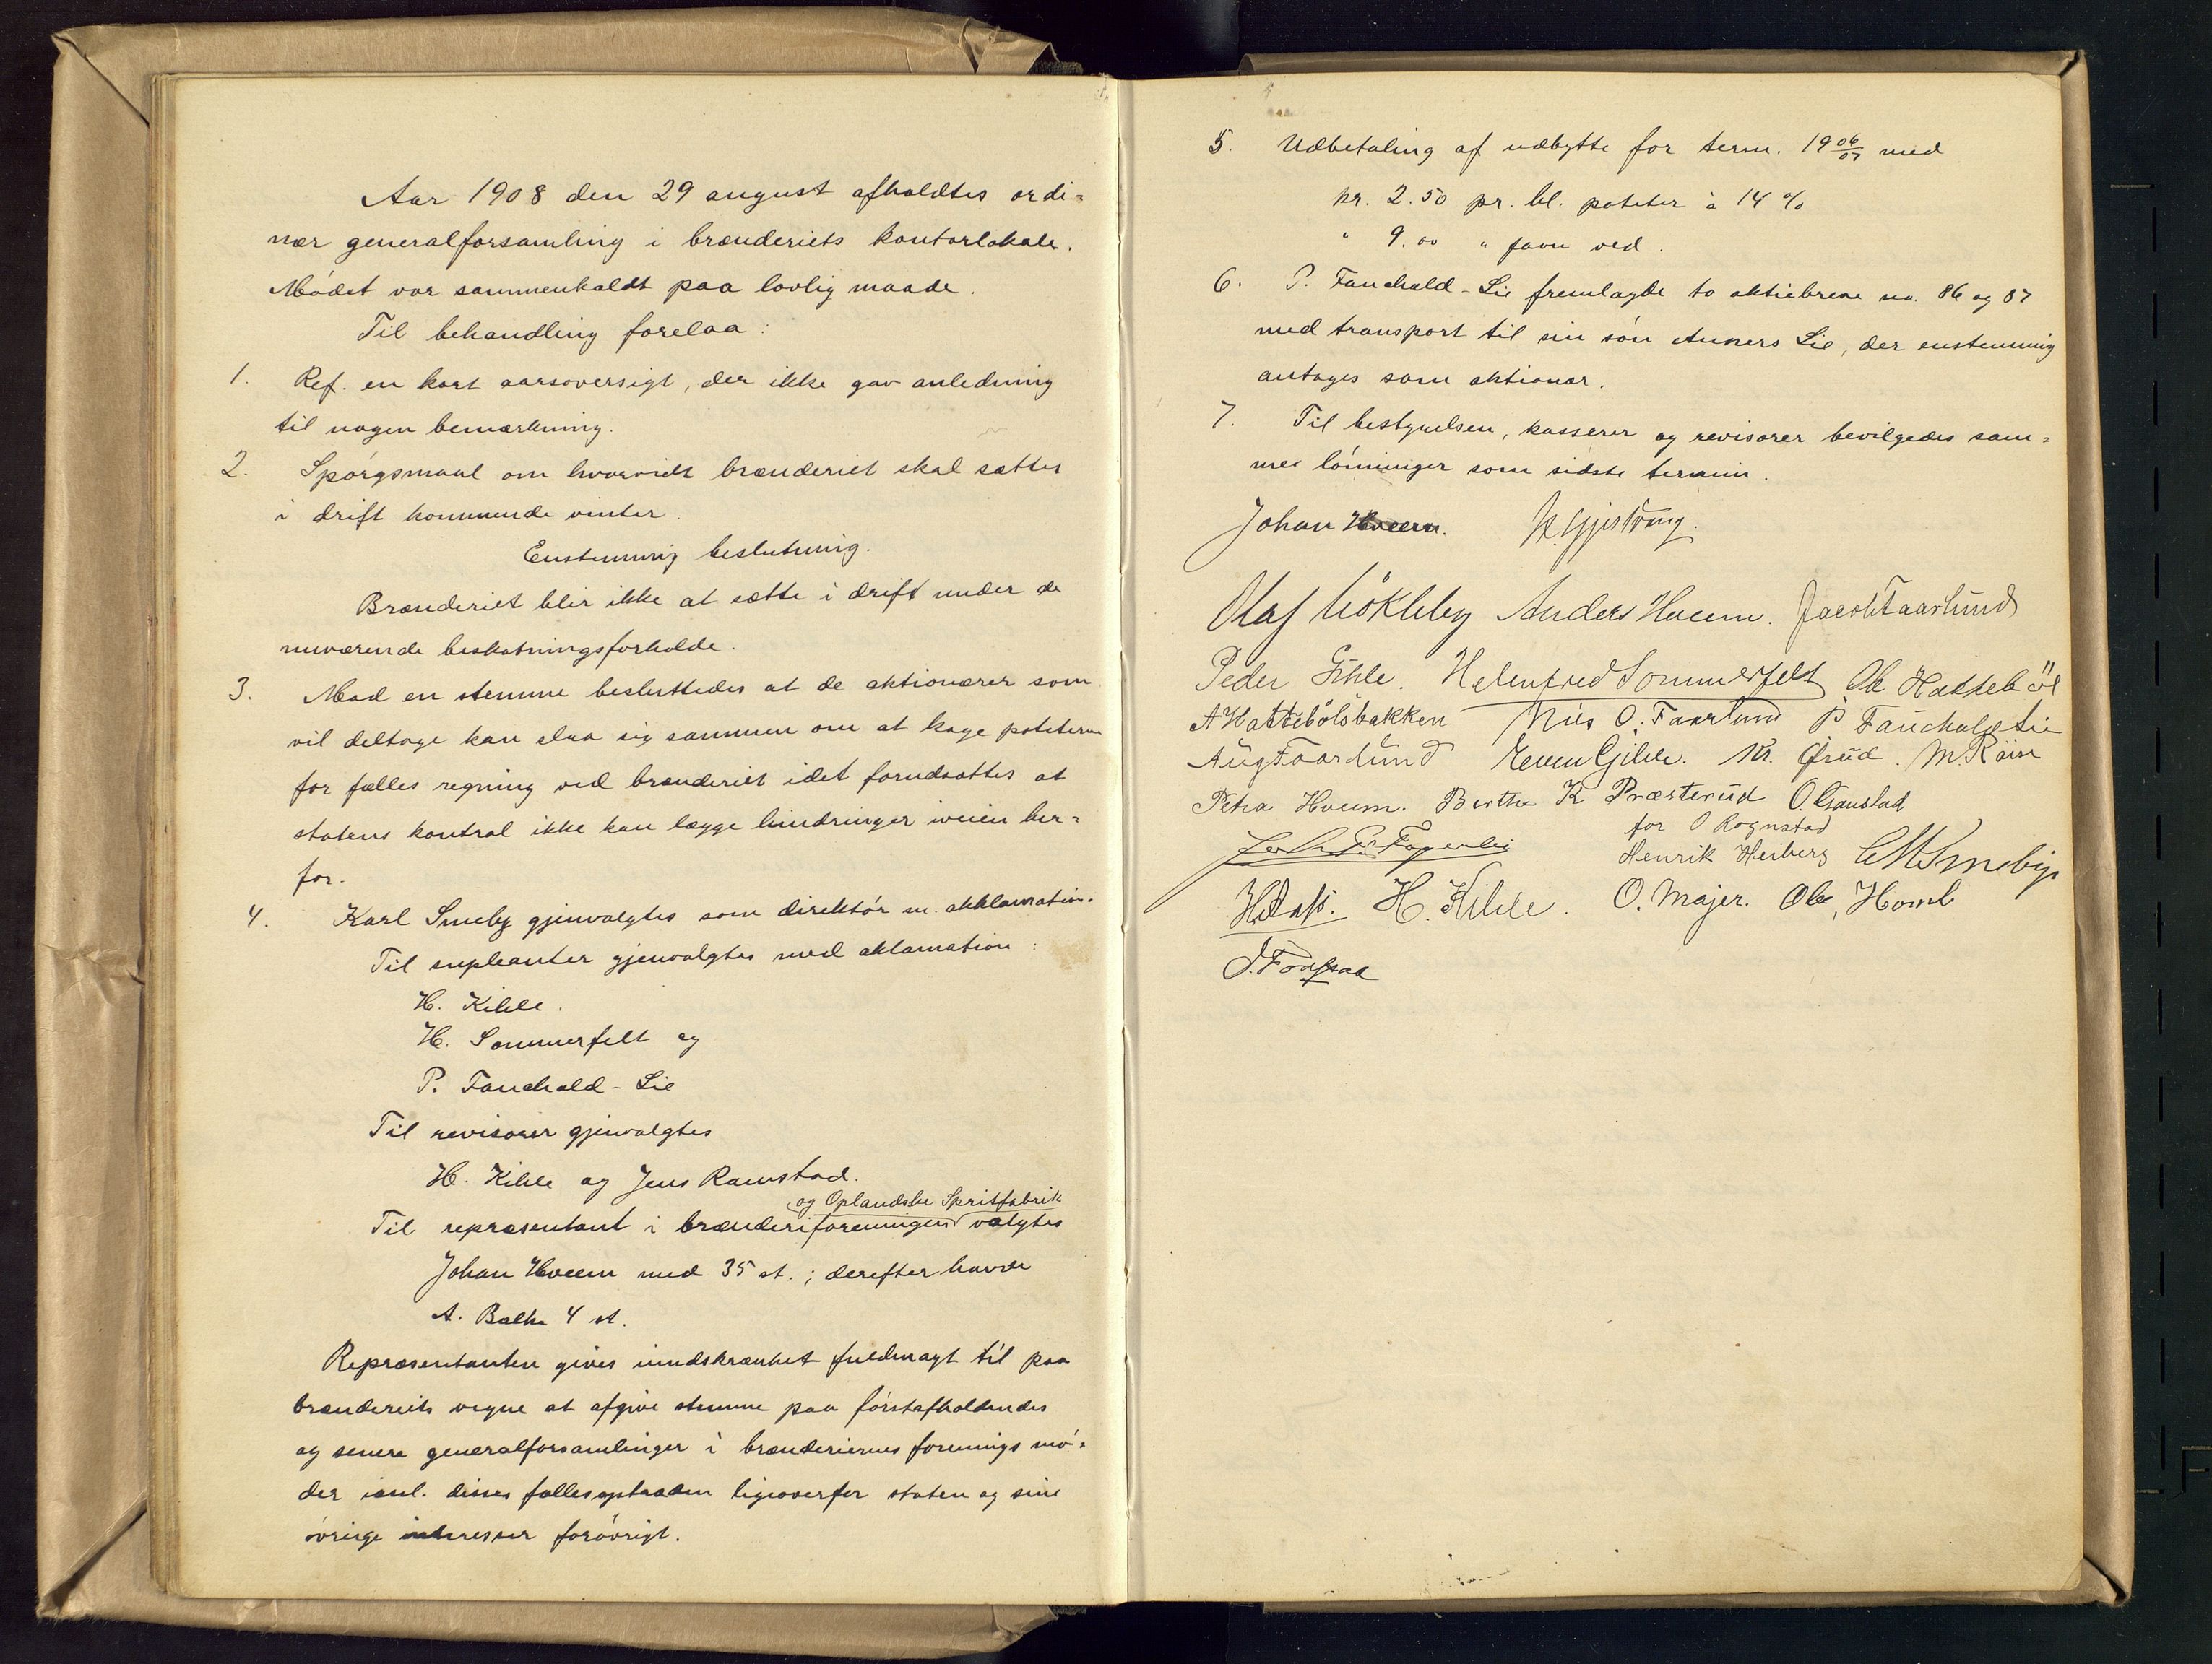 Aar 1908 den 29 august afholdtes ordi=
nær generalforsamling i brænderiets kontorlokale.
Mödet var sammenkaldt paa lovlig maade.
Til behandling forelaa:
1. Ref. en kort aarsoversigt, der ikke gav anledning
til nogen bemærkning.
2. Spörgsmaal om hvorvidt brænderiet skal sættes
i drift kommende vinter.
Enstemmig beslutning.
Brænderiet blir ikke at sætte i drift under de
nuværende beskatningsforholde.
3. Mod en stemme besluttedes at de aktionærer som
vil deltage kan slaa sig sammen om at koge poteterne
for fælles regning ved brænderiet idet forudsættes at
statens kontrol ikke kan lægge hindringer iveien her=
for.
4. Karl Smeby gjenvalgtes som direktör m. akklamation.
Til supleanter gjenvalgtes med aklamation:
H. Kihle.
H. Sommerfelt og
P. Fauchald-Lie
Til revisorer gjenvalgtes
H. Kihle og Jens Ramstad.
og Oplandske Spritfabrik
Til repræsentant i brænderiforeningen valgtes
Johan Hveem med 35 st.; derefter havde
A. Balke 4 st.
Repræsentanten gives uindskrænket fuldmagt til paa
brænderiets vegne at afgive stemme paa förstafholdendes
og senere generalforsamlinger i brænderiernes forenings mö=
der inkl. disses fællesoptræden ligeoverfor staten og sine
övrige interesser forövrigt.
5. Udbetaling af udbytte for term. 19 06/07 med
kr. 2.50 pr. hl. poteter à 14 %
" 9.00 " favn ved.
6. P. Fauchald-Lie fremlagde to aktiebreve no. 86 og 87
med transport til sin sön Anners Lie, der enstemmig
antages som aktionær.
7. Til bestyrelsen, kasserer og revisorer bevilgedes sam=
me lönninger som sidste termin.
Johan Hveem.
Olaf Kökleby Anders Hveem. Jacob Faarlund
Peder Gihle. Helmfred Sommerfelt Ole Hatteböl
A Hattebölsbakken Nils O. Faarlund P Fauchald Lie
Aug Faarlund Even Gihle. M. Röise
Petra Hveem. Berthe K Præsterud O. Gaustad
for O Rognstad
Henrik Heiberg CMSmeby
H. Kihle. O. Majer. Ole Homb